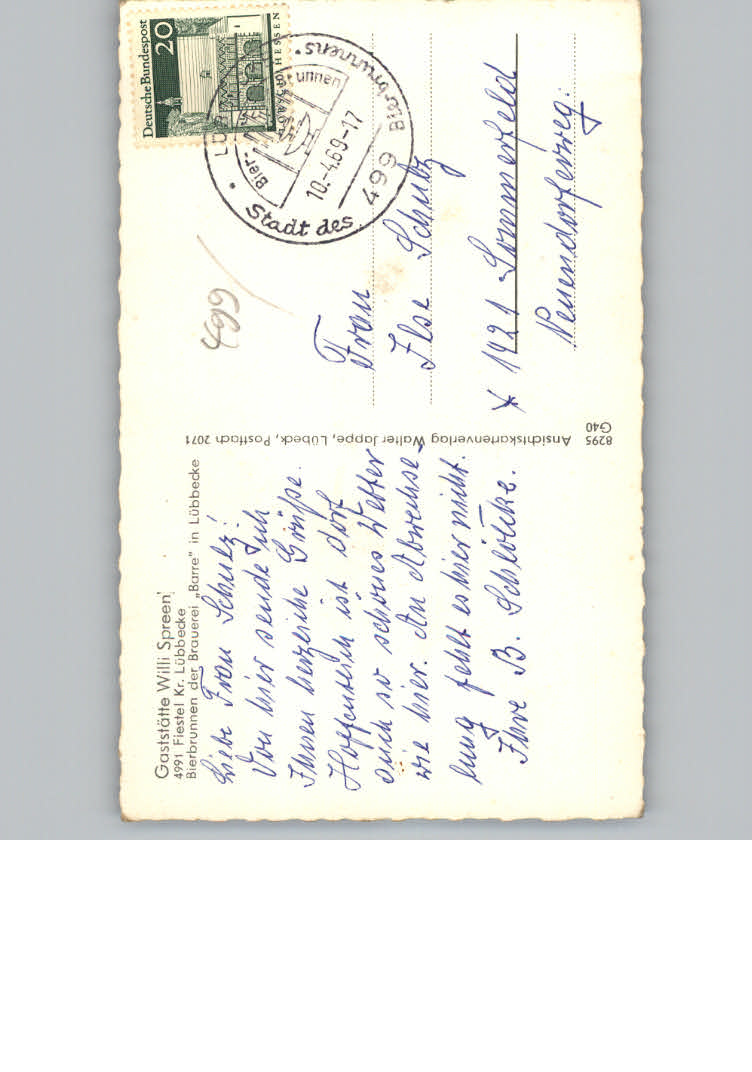 Gaststätte Willi Spreen
4991 Fiestel Kr. Lübbecke
Bierbrunnen der Brauerei „Barre" in Lübbecke
Liebe Frau Schulz!
Von hier sende ich
Ihnen herzliche Grüße.
Hoffentlich ist dort
auch so schönes Wetter
wie hier. An Abwechse-
lung fehlt es hier nicht.
Ihre B.
8295
G40
Ansichtskartenverlag Walter Jappe, Lübeck, Postfach 2071
Deutsche Bundespost
20
HESSEN
Stadt des Bierbrunnens
Bier-brunnen
10.-4.69-17
499
499
Frau
Ilse Schulz
X 1421 Sommerfeld
Neuendorferweg.